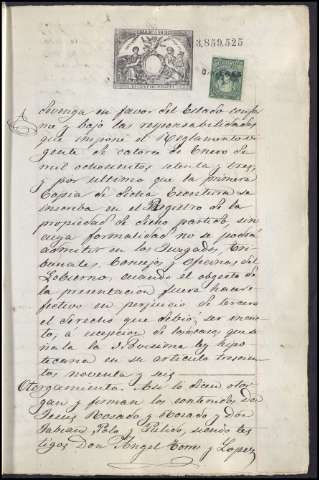 3,859,525
devenga en favor del Estado confor
me bajo las responsabilidades
que impone el Reglamento vi
gente de catorce de Enero de
mil ochocientos setenta y tres,
y por ultimo que la primera
Copia de dicha Escritura se
inscriba en el Registro de la
propiedad de dicho partido sin
cuya formalidad no se podrá
admitir en los Juzgados, Tri-
bunales, Consejos y Oficinas del
Gobierno, cuando el objeto de
la presentacion fuere hacer e-
fectivo en perjuicio de tercero
el derecho que debió ser inscri-
to, á excepcion de los casos que se
ñala la novisima ley hipo
tecaria en su articulo trescien
tos noventa y seis
Otorgamiento. Asi lo dicen otor
gan y firman los contenidos don
Jesus Rosado y Rosado y don
Fabian Polo y Pulido, siendo tes
tigos Don Angel Torres y Lopez